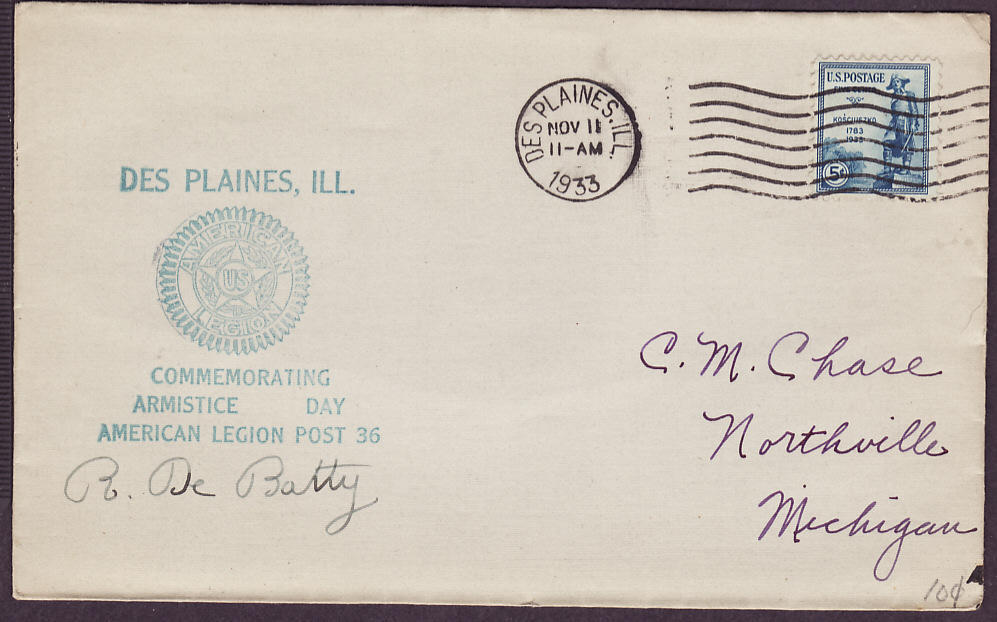 DES PLAINES, ILL.
NOV 11
11-AM
1933
U.S. POSTAGE
FIVE CENTS
KOSCIUSZKO
1783
1933
5¢
DES PLAINES, ILL.
AMERICAN
US
LEGION
COMMEMORATING
ARMISTICE DAY
AMERICAN LEGION POST 36
R. De Batty
C. M. Chase
Northville
Michigan
10¢